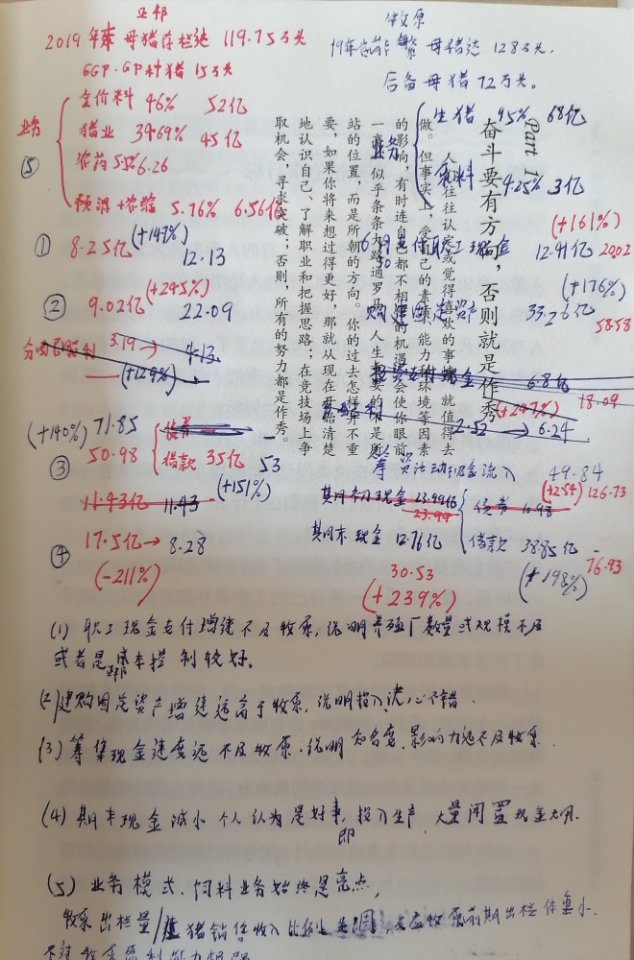 正邦
2019年末 母猪存栏达 119.75万头
GGP.GP种猪 15万头
业务
全价料 46% 52亿
猪业 39.69% 45亿
农药 5.5% 6.26
预混+农险 5.76% 6.56亿
⑤
① 8.25亿 (+147%) 12.13
② 9.02亿 (+245%) 22.09
3.19 → 4.13
(+129%)
(+140%) 71.85
③ 50.98
债券
借款 35亿 53
(+151%)
11.43亿 11.43
④ 17.5亿→ 8.28
(-211%)
牧原
19年末能繁母猪达 128万头.
后备母猪 72万头。
业务
生猪 95% 68亿
4.25% 3亿
(+161%)
支付职工现金 12.41亿 20.02
(+176%)
购建固定资产 33.26亿 58.58
6.8亿
(+247%) 18.09
2.52 → 6.24
筹资活动现金流入 49.84
(+254) 126.73
期初现金 23.99亿
23.99
债券 10.98
期末现金 12.76亿
借款 38.85亿 — 76.93
30.53
(+239%)
(+198%)
Part 1
奋斗要有方向，否则就是作秀
人们往往认定或觉得喜欢的事情就值得去
做。但事实上，受自己的素质、能力和环境等因素
的影响，有时连自己都不相信的机遇却会使你眼前
一亮，似乎条条大路通罗马。人生重要的不是所
站的位置，而是所朝的方向。你的过去怎样并不重
要，如果你将来想过得更好，那就从现在开始清楚
地认识自己、了解职业和把握思路；在竞技场上争
取机会，寻求突破；否则，所有的努力都是作秀。
(1) 职工现金支付增速不及牧原，说明养殖厂数量或规模不及
或者是正邦成本控制较好。
(2) 建购固定资产增速远高于牧原，说明投入决心不错.
(3) 筹集现金速度远不及牧原.说明知名度.影响力远不及牧原.
(4) 期末现金减小 个人认为是好事，即投入生产，大量闲置现金无用.
(5) 业务模式.饲料业务始终是亮点，
牧原出栏量/生猪销售收入比例 牧原前期出栏体重小.